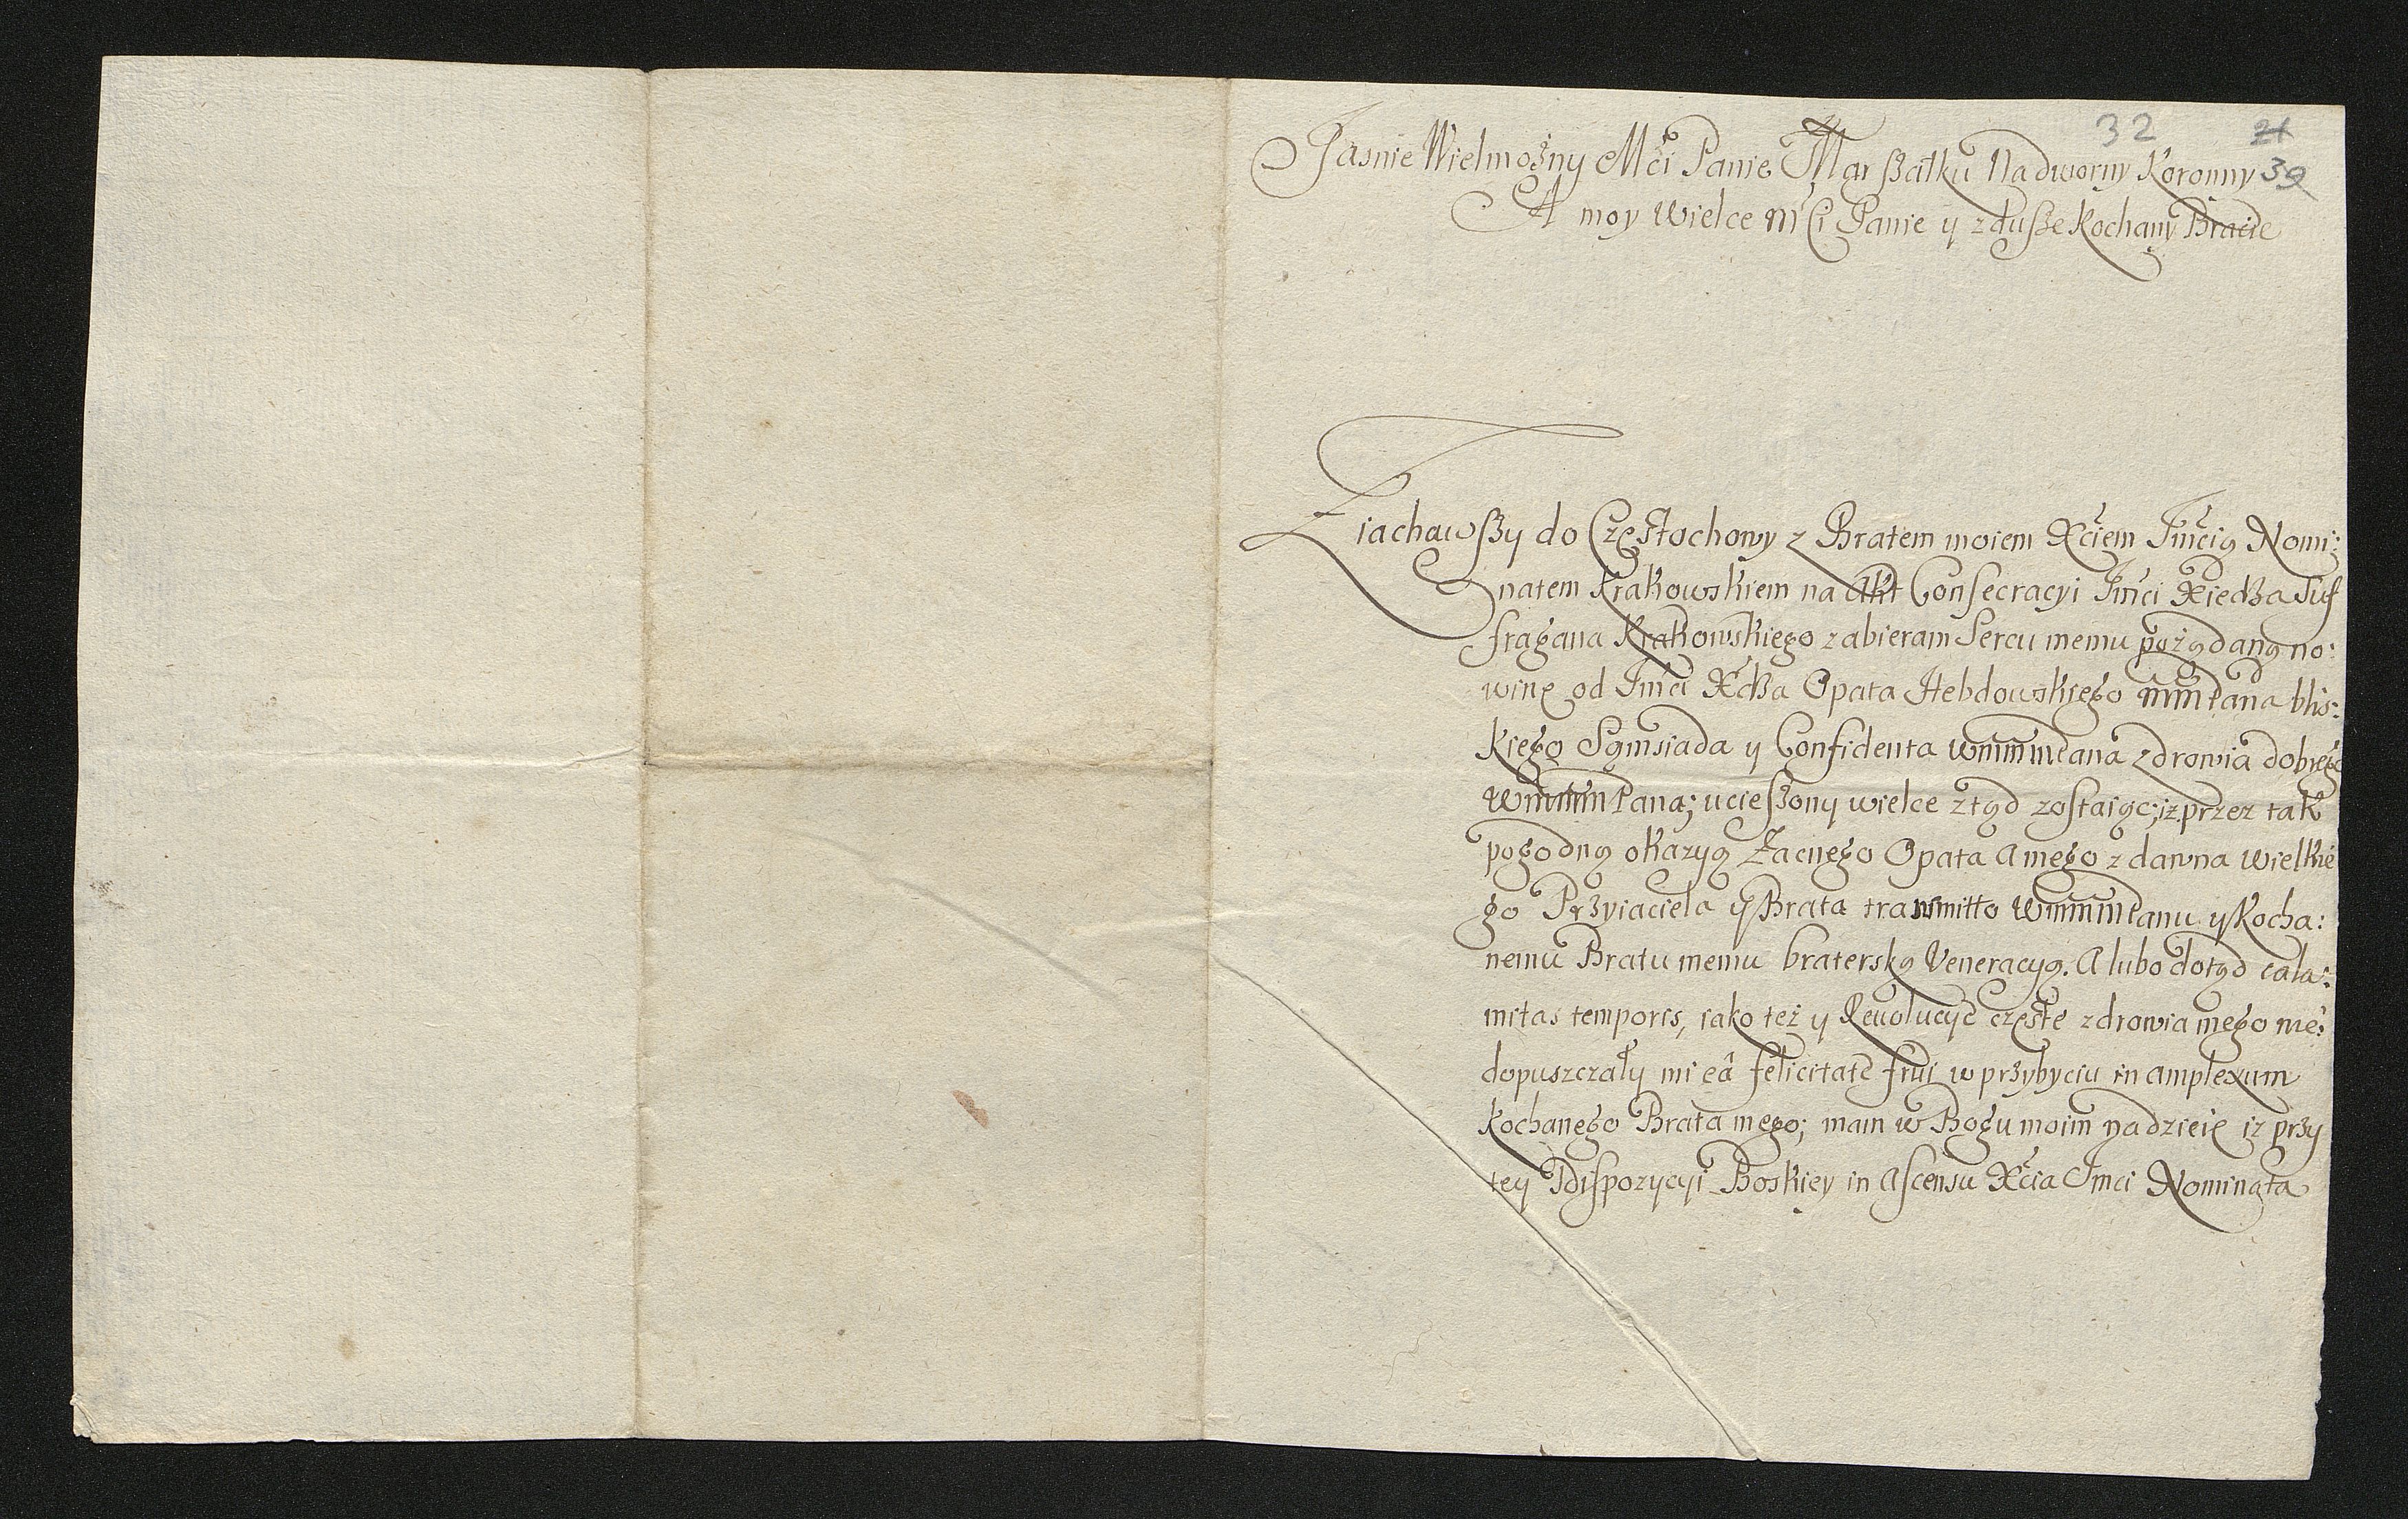 32 21
Jasnie Wielmożny Mći Panie Marszałku Nadworny Koronny 39
A moy wielce mći Panie y z dusze Kochany Bracie
Ziachawszy do Częstochowy z Bratem moiem Xćiem Jmćią Nomi:
natem Krakowskiem na Akt Consecracyi Jmći Xiedza Suf
fragana Krakowskiego zabieram Sercu memu pożądaną no:
winę od Jmći Xdza Opata Hebdowskiego mm Pana blis:
kiego Sąmsiada y Confidenta wmmm Pana zdrowia dobrego
wmmm Pana; ucieszony wielce ztąd zostaiąc; iz przez tak
pogodną okazyą Zacnego Opata A mego z dawna wielkie
go Przyiaciela y Brata transmitto wmmm Panu y Kocha:
nemu Bratu memu braterską Veneracyą. A lubo dotąd cala:
mitas temporis, iako też y Rewolucye częste zdrowia mego nie:
dopuszczały mi eâ felicitate frui w przybyciu in amplexum
kochanego Brata mego; mam w Bogu moim nadzieię iz przy
tey Dispozycyi Boskiey in Ascensu Xćia Jmci Nominata